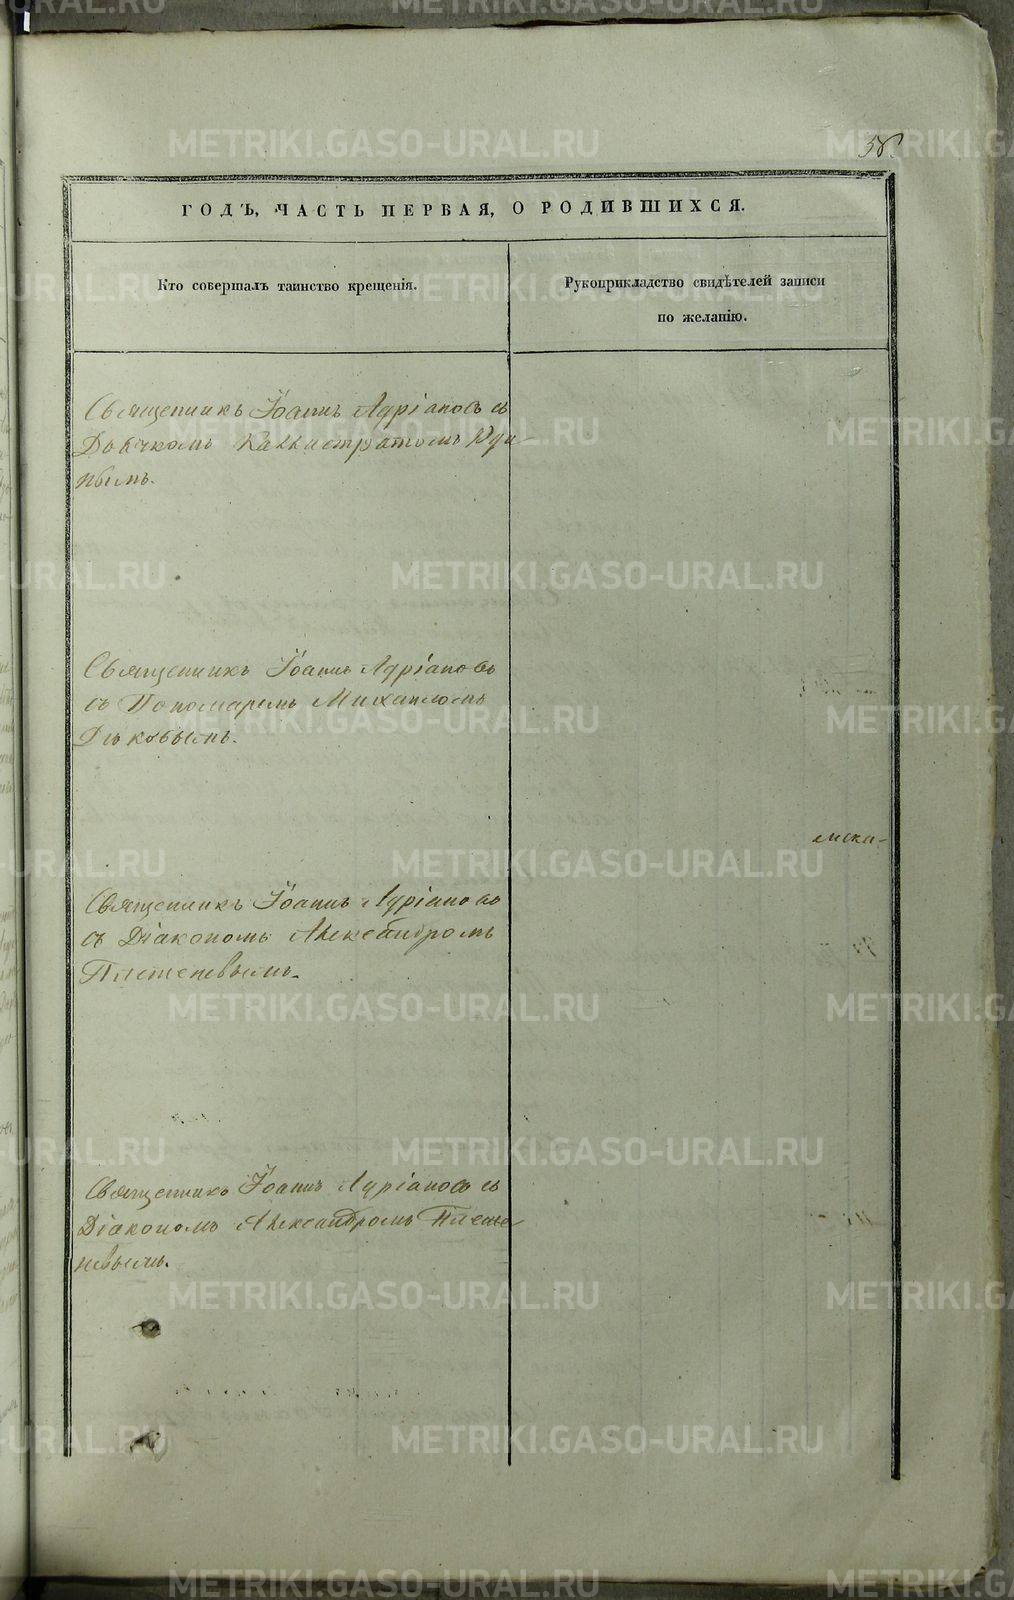 58.
ГОДЪ, ЧАСТЬ ПЕРВАЯ, О РОДИВШИХСЯ.
Кто совершалъ таинство крещенія.
Рукоприкладство свидѣтелей записи
по желанію.
Священникъ Іоаннъ Адріановъ съ
Дьячкомъ Каллистратомъ Уди-
нымъ.
Священникъ Іоаннъ Адріановъ
съ Пономаремъ Михаиломъ
Дьковымъ.
Священникъ Іоаннъ Адріановъ
съ Діакономъ Александромъ
Плетеневымъ.
Священникъ Іоаннъ Адріановъ съ
Діакономъ Александромъ Плете-
невымъ.
METRIKI.GASO-URAL.RU